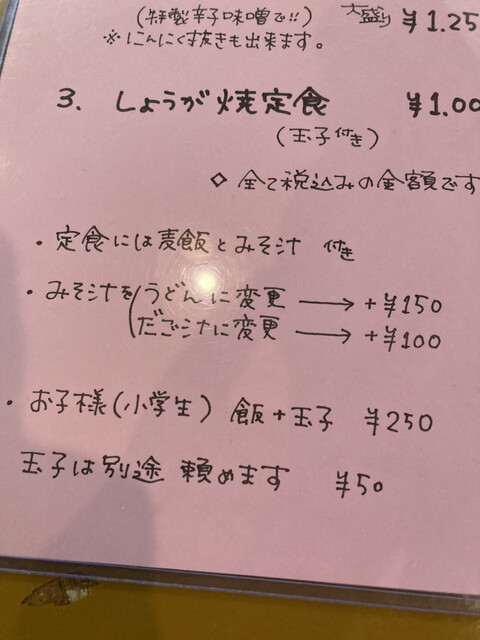 (特製辛子味噌で!!) 大盛り ¥1.25
※ にんにく抜きも出来ます。
3. しょうが焼定食 ¥1.00
(玉子付き)
◇ 全て税込みの金額です
・定食には麦飯とみそ汁 付き
・みそ汁を(うどんに変更 → +¥150
だご汁に変更 → +¥100
・お子様(小学生) 飯+玉子 ¥250
玉子は別途 頼めます ¥50